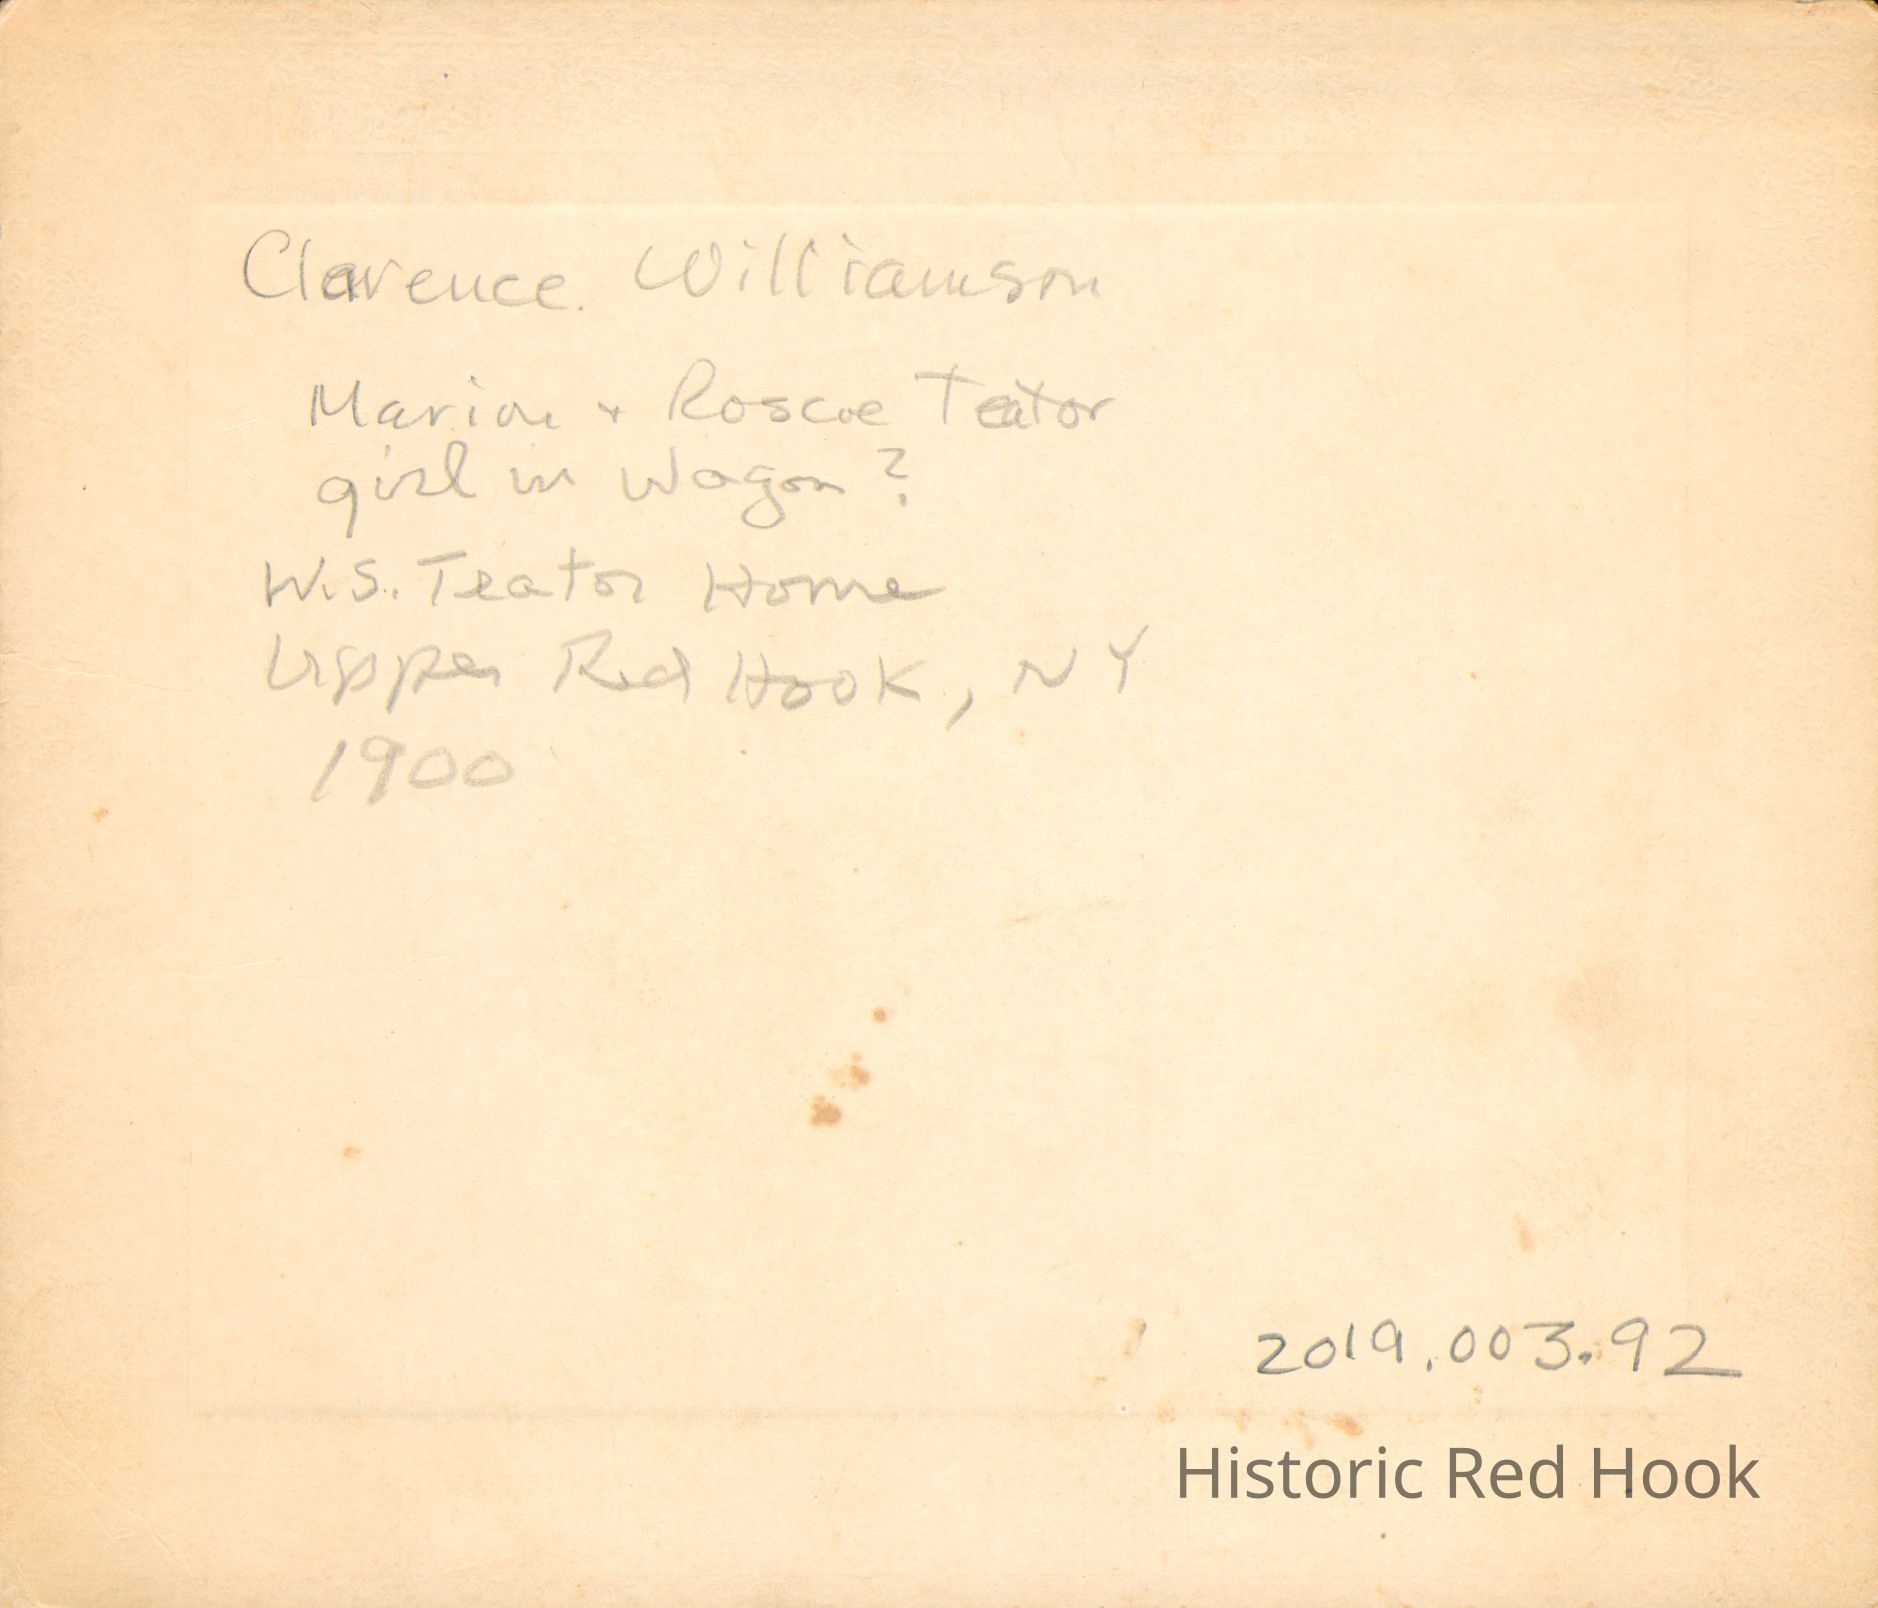 Clarence Williamson
Marion + Roscoe Teator
girl in Wagon?
W.S. Teator Home
Upper Red Hook, NY
1900
2019.003.92
Historic Red Hook